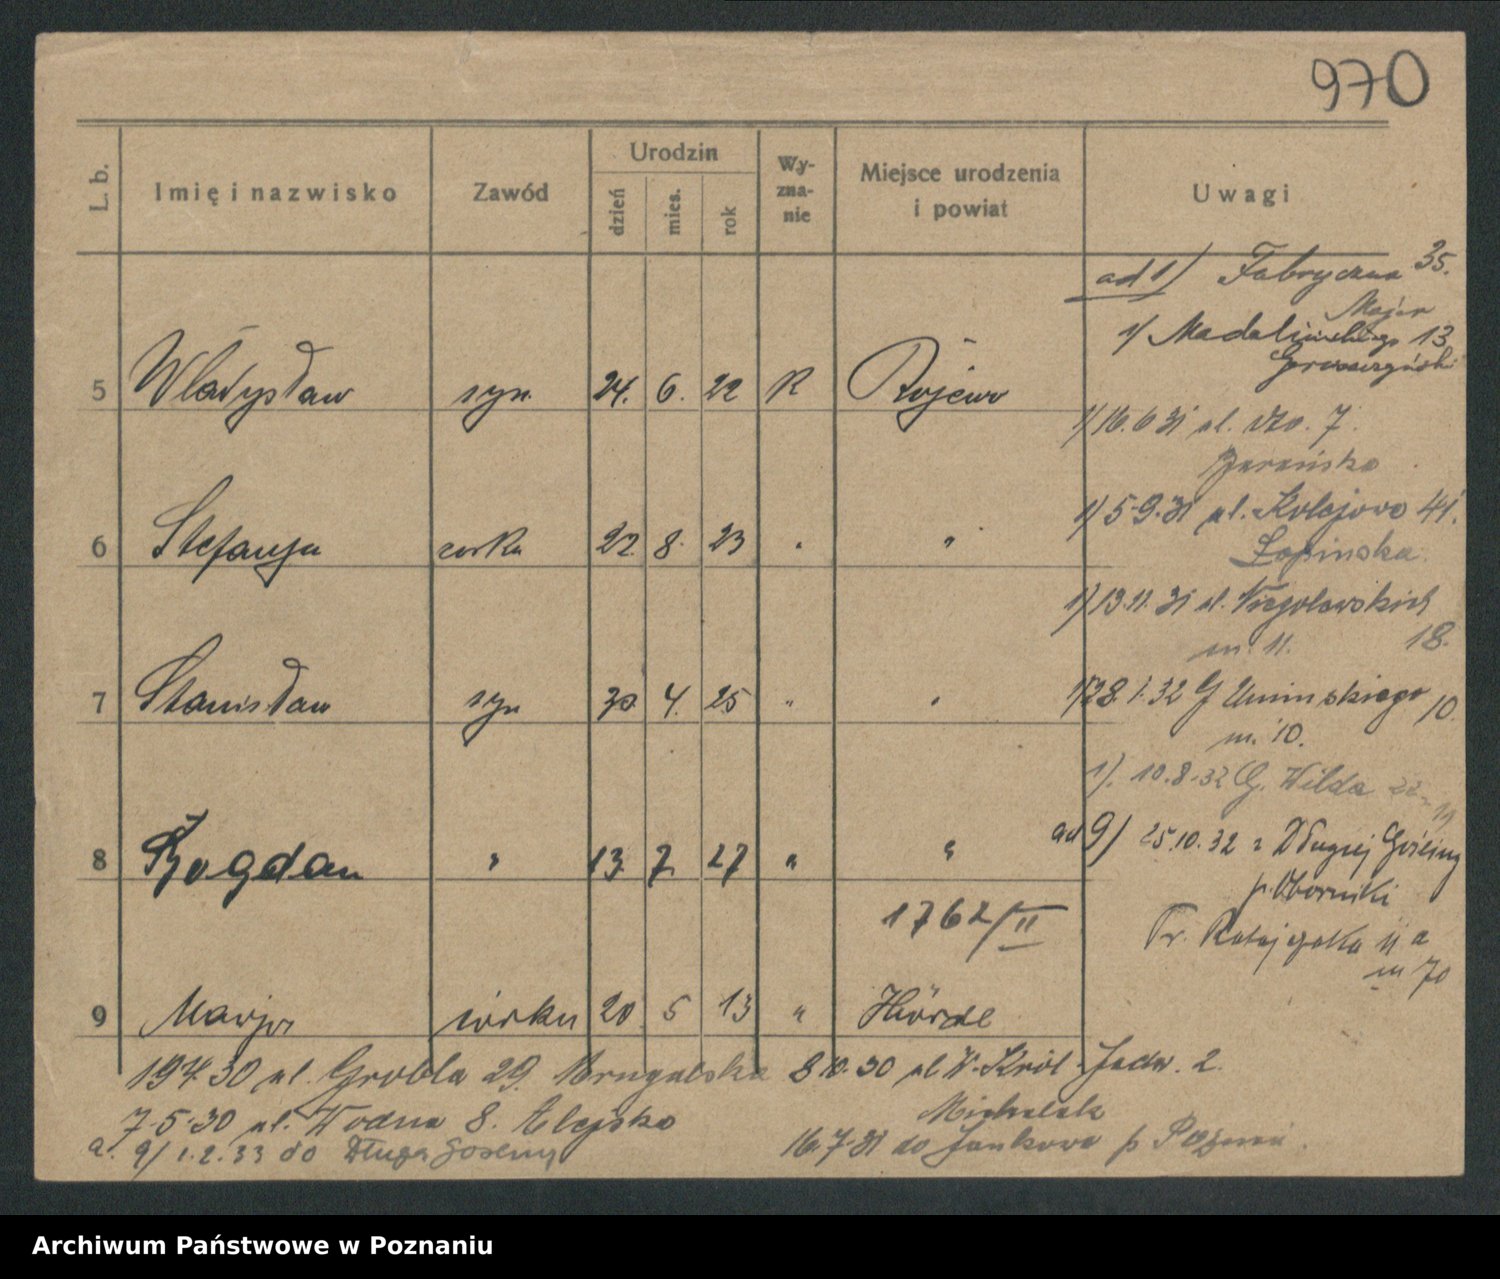 970
L. b. Imię i nazwisko Zawód Urodzin dzień mies. rok Wy-zna-nie Miejsce urodzenia i powiat Uwagi
ad 1) Fabryczna 35.
Majer
1) Madalińskiego 13
5 Władysław syn 24. 6. 22 R Rojewo
1) 16.6 31 ul. 7.
1) 5.9.31 ul. Kolejowa 41.
6 Stefanja corka 22 8. 23 " "
Łopinska
1) 13.11.31 ul. Niegolewskich 18.
m. 11.
7 Stanisław syn 30 4. 25 " "
1) 28.1.32 G Umińskiego 10
m. 10.
1). 10.8.32 G. Wilda 22
8 Bogdan " 13 7 27 " "
ad 9) 25.10.32 z Długiej Gośliny
p. Oborniki
1762/II
Fr. Ratajczaka 11 a
m 70
9 Marja córka 20 5 13 " Hörde
19.7.30 ul. Grobla 29. 8.10.30 ul W. Król. Jadw. 2.
7.5.30 ul. Wodna 8. Michalak
a. 9/ 1.2.33 do Długa Goślina 16.7.31 do Jankowo p Poznań.